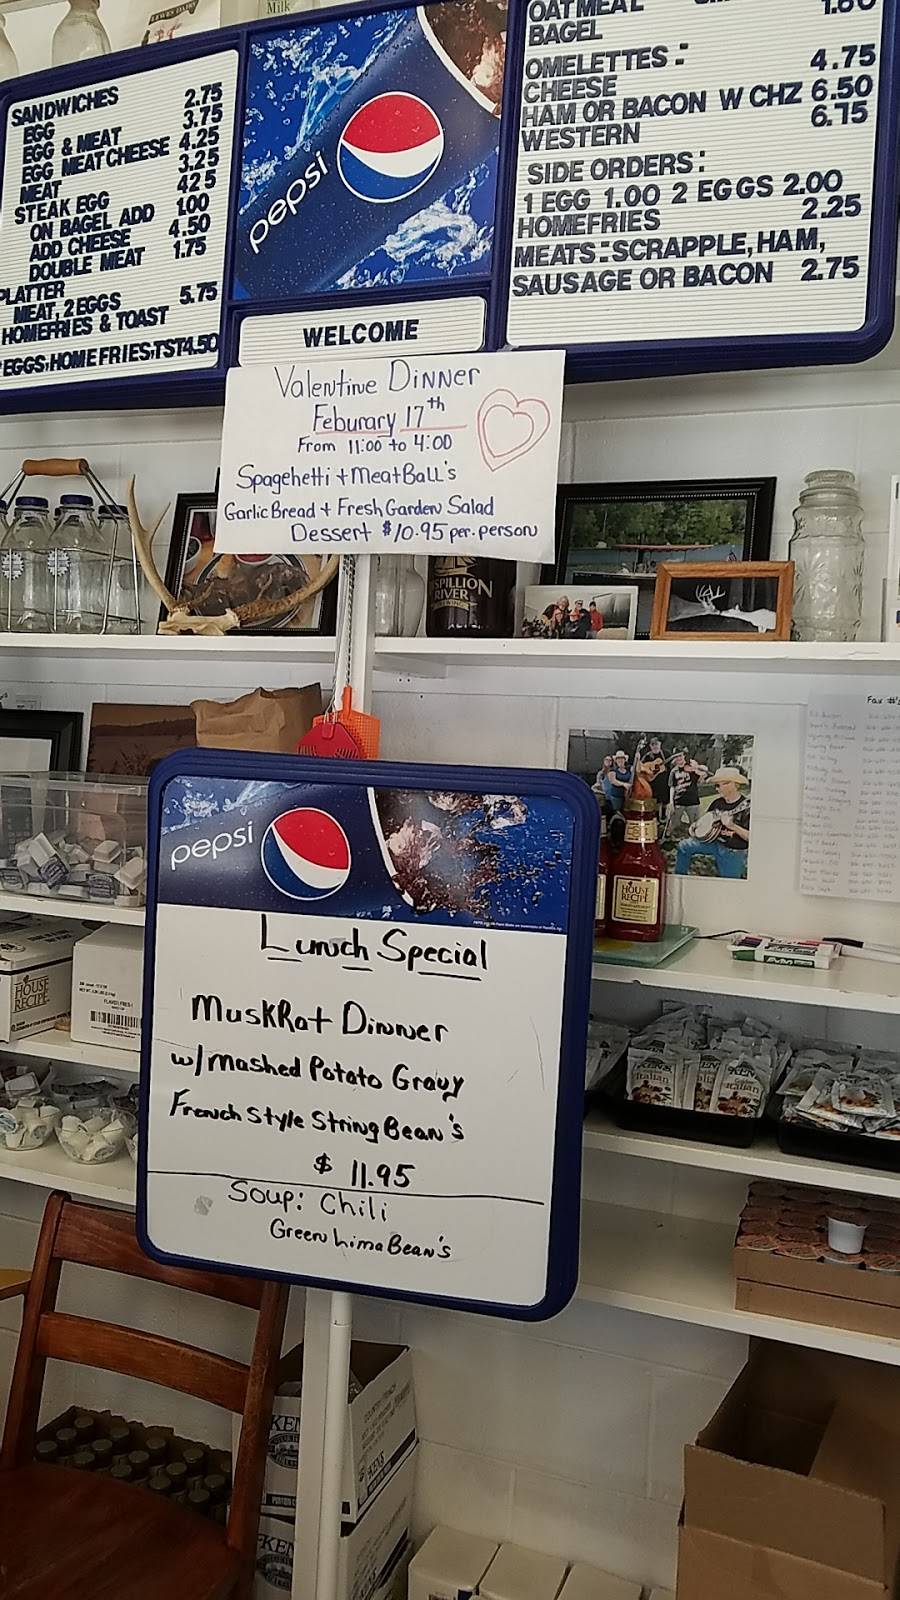 SANDWICHES
EGG 2.75
EGG & MEAT 3.75
EGG MEAT CHEESE 4.25
MEAT 3.25
STEAK EGG 425
ON BAGEL ADD 1.00
ADD CHEESE 4.50
DOUBLE MEAT 1.75
PLATTER
MEAT, 2 EGGS
HOMEFRIES & TOAST 5.75
EGGS,HOMEFRIES,TST4.50
pepsi
WELCOME
OATMEAL
BAGEL 1.60
OMELETTES :
CHEESE 4.75
HAM OR BACON W CHZ 6.50
WESTERN 6.15
SIDE ORDERS :
1 EGG 1.00 2 EGGS 2.00
HOMEFRIES 2.25
MEATS : SCRAPPLE, HAM,
SAUSAGE OR BACON 2.75
Valentine Dinner
Feburary 17th
From 11:00 to 4:00
Spagehetti + MeatBall's
Garlic Bread + Fresh Garden Salad
Dessert $10.95 per.person
SPILLION
RIVER
pepsi
Lunch Special
MuskRat Dinner
w/ Mashed Potato Gravy
French Style String Bean's
$ 11.95
Soup: Chili
Green Lima Bean's
HOUSE
RECIPE
HOUSE
RECIPE
KEN'S
Italian
Fax #'s
KEN'S
Milk